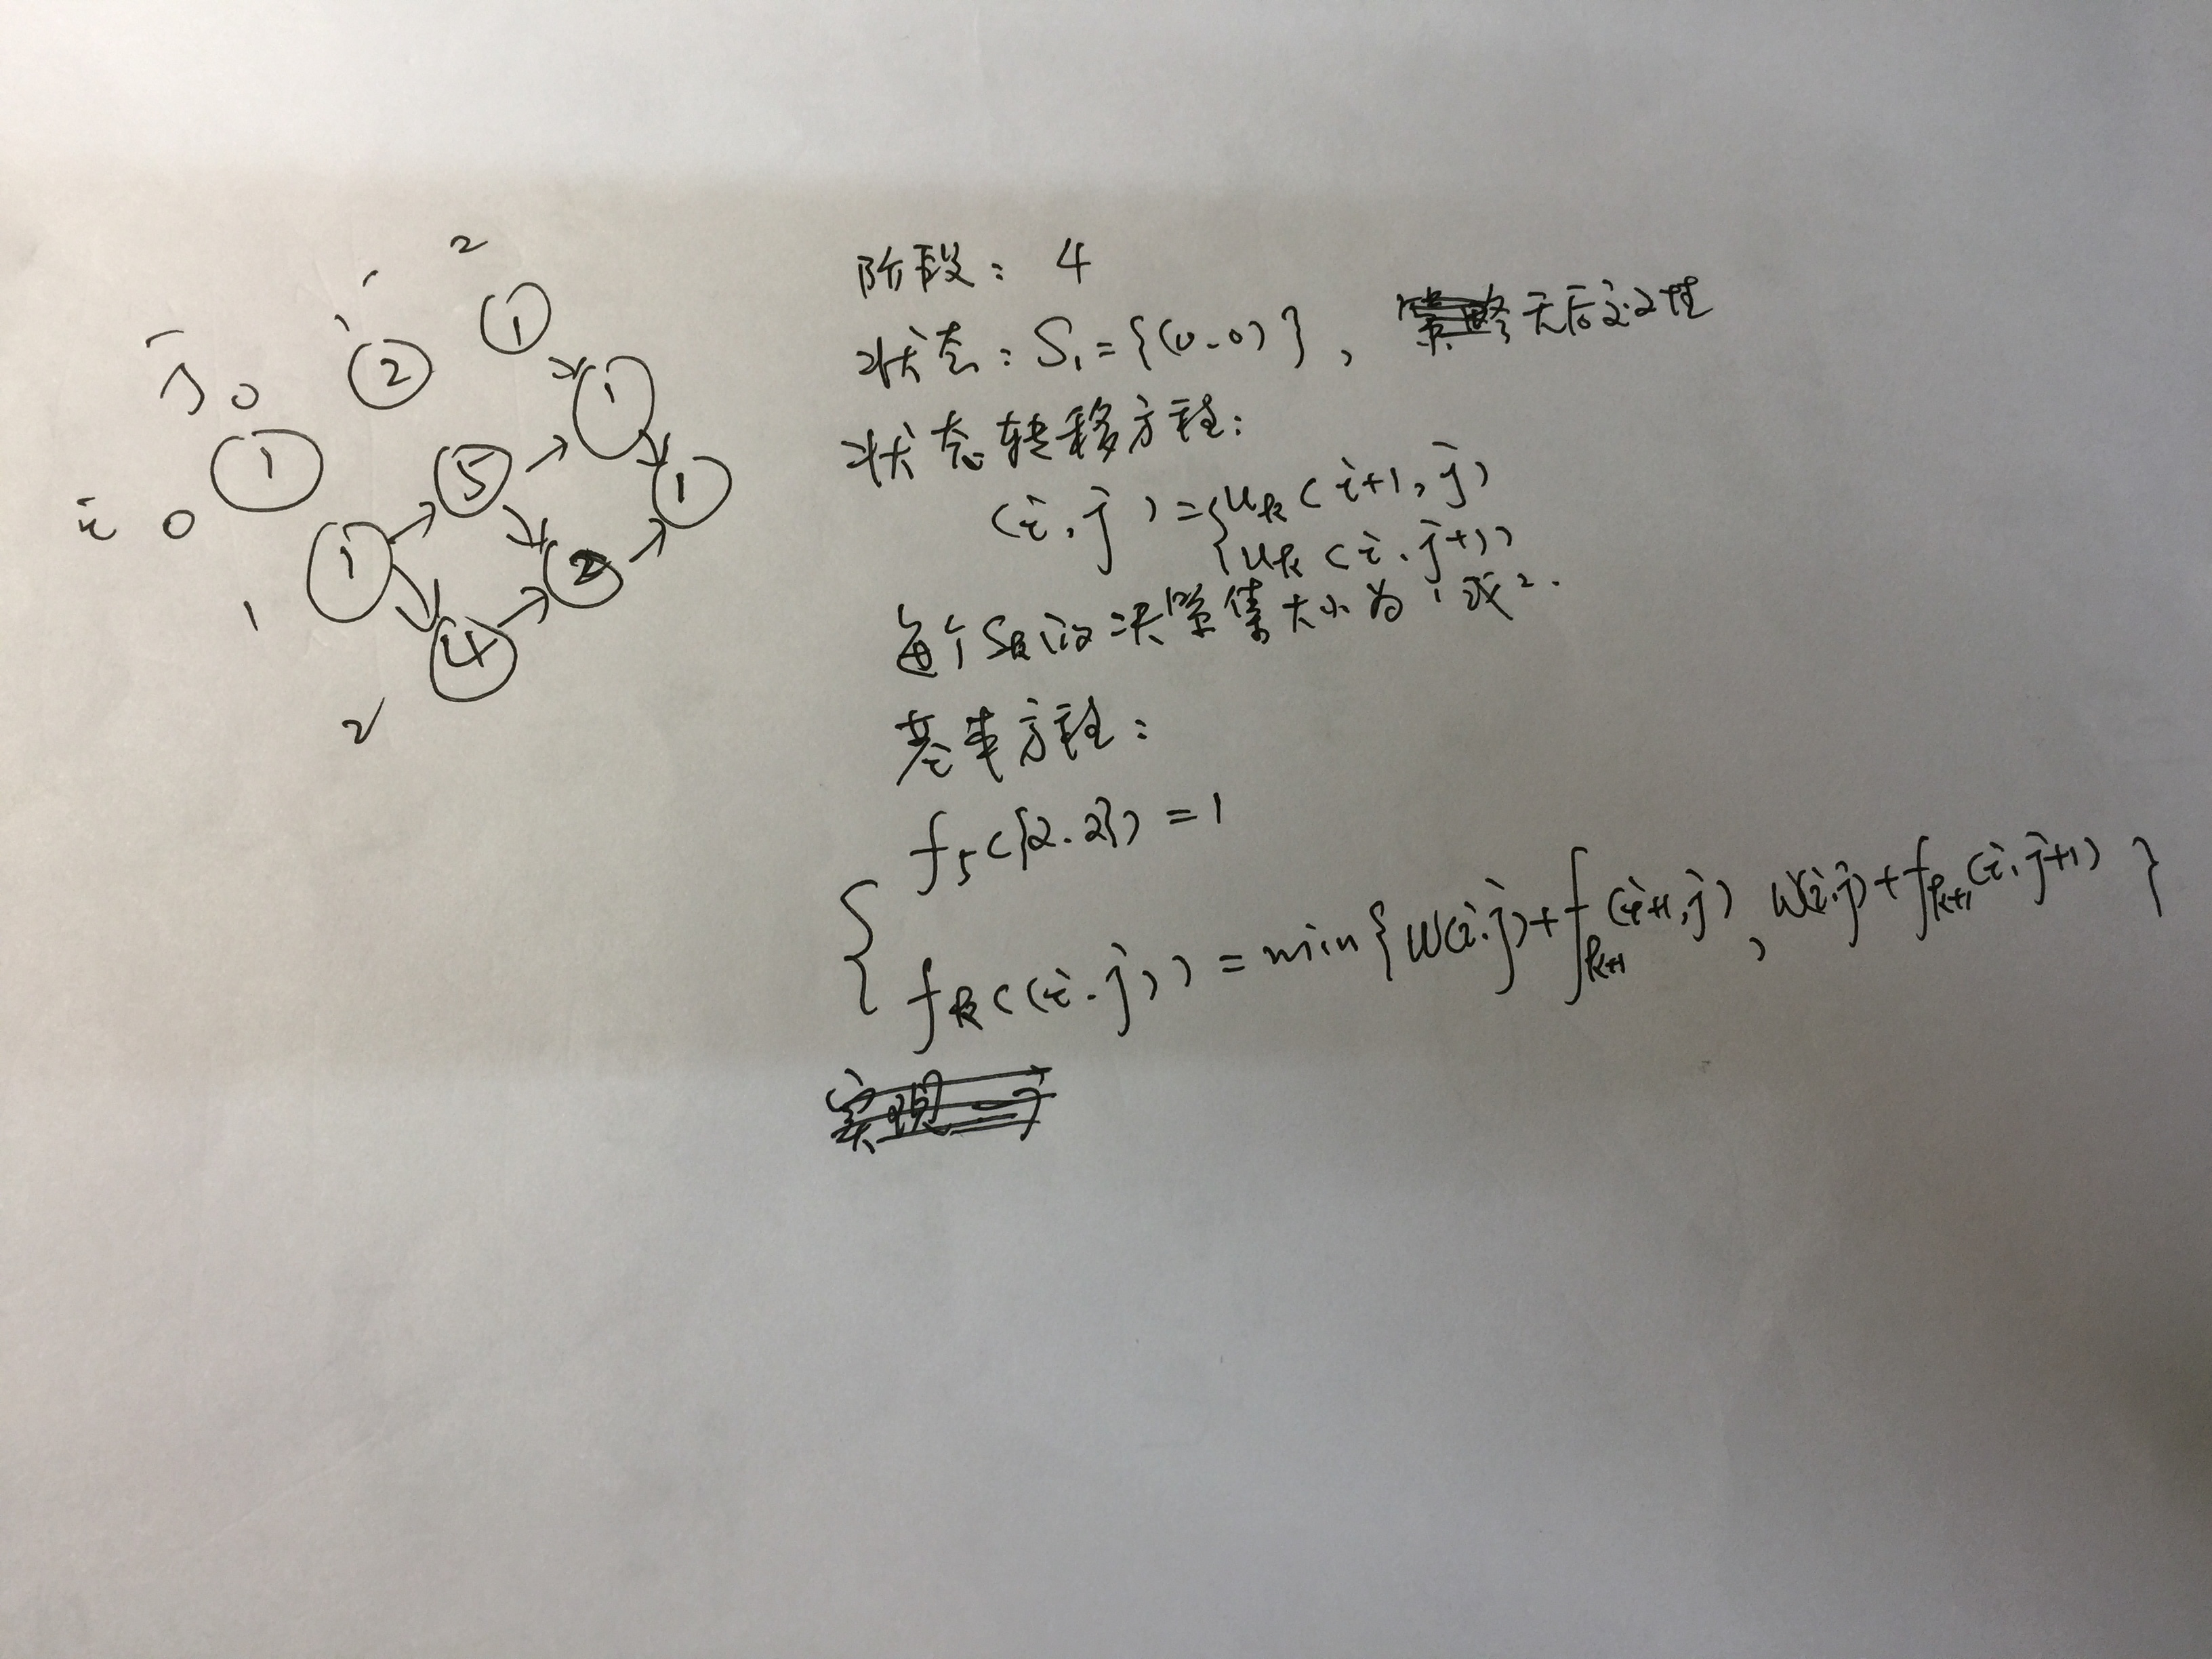 2
1
j 0
1
2
1
1
5
1
i 0
1
2
1
4
2
阶段：4
状态：S₁={(0.0)}，无后效性
状态转移方程：
(i,j)={uₖ(i+1,j)
{uₖ(i.j+1)
每个Sₖ的决策集大小为1或2.
基本方程：
f₅({2.2})=1
{
fₖ((i.j))=min{W(i.j)+fₖ₊₁(i+1,j),W(i.j)+fₖ₊₁(i,j+1)}